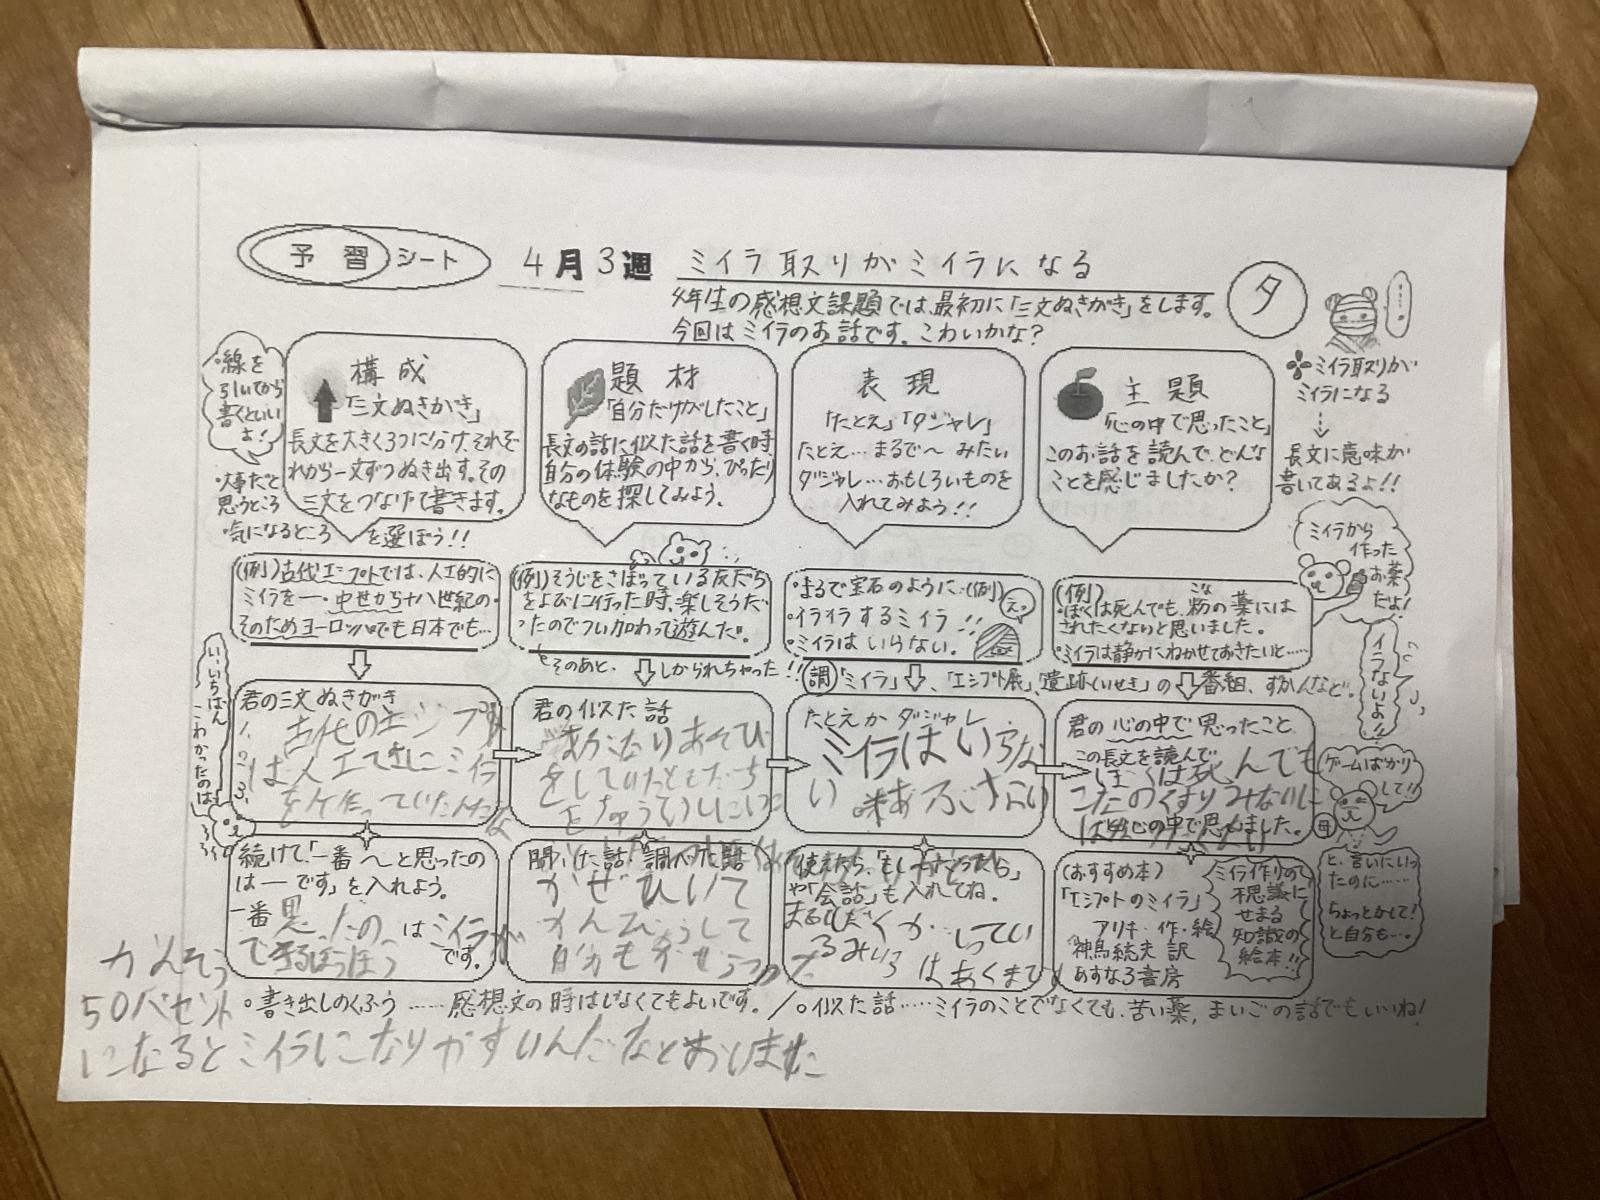 予習シート 4月3週 ミイラ取りがミイラになる
4年生の感想文課題では、最初に「三文ぬきがき」をします。
今回はミイラのお話です。こわいかな?
夕
・線を
引いてから
書くといい
よ!
構成
「三文ぬきがき」
長文を大きく3つに分け、それぞ
れから一文ずつぬき出す。その
三文をつなげて書きます。
・大事だと
思うところ
・気になるところ
を選ぼう!!
題材
「自分だけがしたこと」
長文の話に似た話を書く時、
自分の体験の中から、ぴったり
なものを探してみよう。
表現
「たとえ」「ダジャレ」
たとえ…まるで〜みたい
ダジャレ…おもしろいものを
入れてみよう!!
主題
「心の中で思ったこと」
このお話を読んで、どんな
ことを感じましたか?
ミイラ取りが
ミイラになる
長文に意味が
書いてあるよ!!
ミイラから
作った
お薬
だよ!
(例)古代エジプトでは、人工的に
ミイラを―・中世から十八世紀の・
そのためヨーロッパでも日本でも…
(例)そうじをさぼっている友だち
をよびに行った時、楽しそうだ
ったのでつい加わって遊んだ。
そのあと、しかられちゃった!!
・まるで宝石のように…(例)
・イライラするミイラ
・ミイラはいらない。!!
えっ
(例)
・ぼくは死んでも、粉の薬には
こな
されたくないと思いました。
・ミイラは静かにねかせておきたいと……
イラないよ!!
調「ミイラ」、「エジプト展」、「遺跡(いせき)」の番組、ずかんなど。
い、いちばん
こわかったのは
君の三文ぬきがき
1.
2.
3.
古代のエジプト
は人工てきにミイラ
を作っていたんだな
君の似た話
あそび
をしていたともだち
をちゅういしにいっ
たとえかダジャレ
ミイラはいらな
い
君の心の中で思ったこと
この長文を読んで、
ぼくは死んでも
こなのくすりみないに
は
と心の中で思いました。
ゲームばかり
して!!
母
と、言いにいっ
たのに……
ちょっとかして!
と自分も…。
続けて、「一番〜と思ったの
は―です」を入れよう。
一番思ったのはミイラが
です。
聞いた話・調べた話
かぜひいて
かんびょうして
自分も
使えたら、「もし〜だったら」
や「会話」も入れてね。
(おすすめ本)
「エジプトのミイラ」
アリキ・作・絵
神鳥統夫 訳
あすなろ書房
ミイラ作りの
不思議に
せまる
知識の
絵本!!
。書き出しのくふう……感想文の時はしなくてもよいです。/。似た話……ミイラのことでなくても、苦い薬、まいごの話でもいいね!
かんそう
50パセント
になるとミイラになりやすいんだなとおもいました